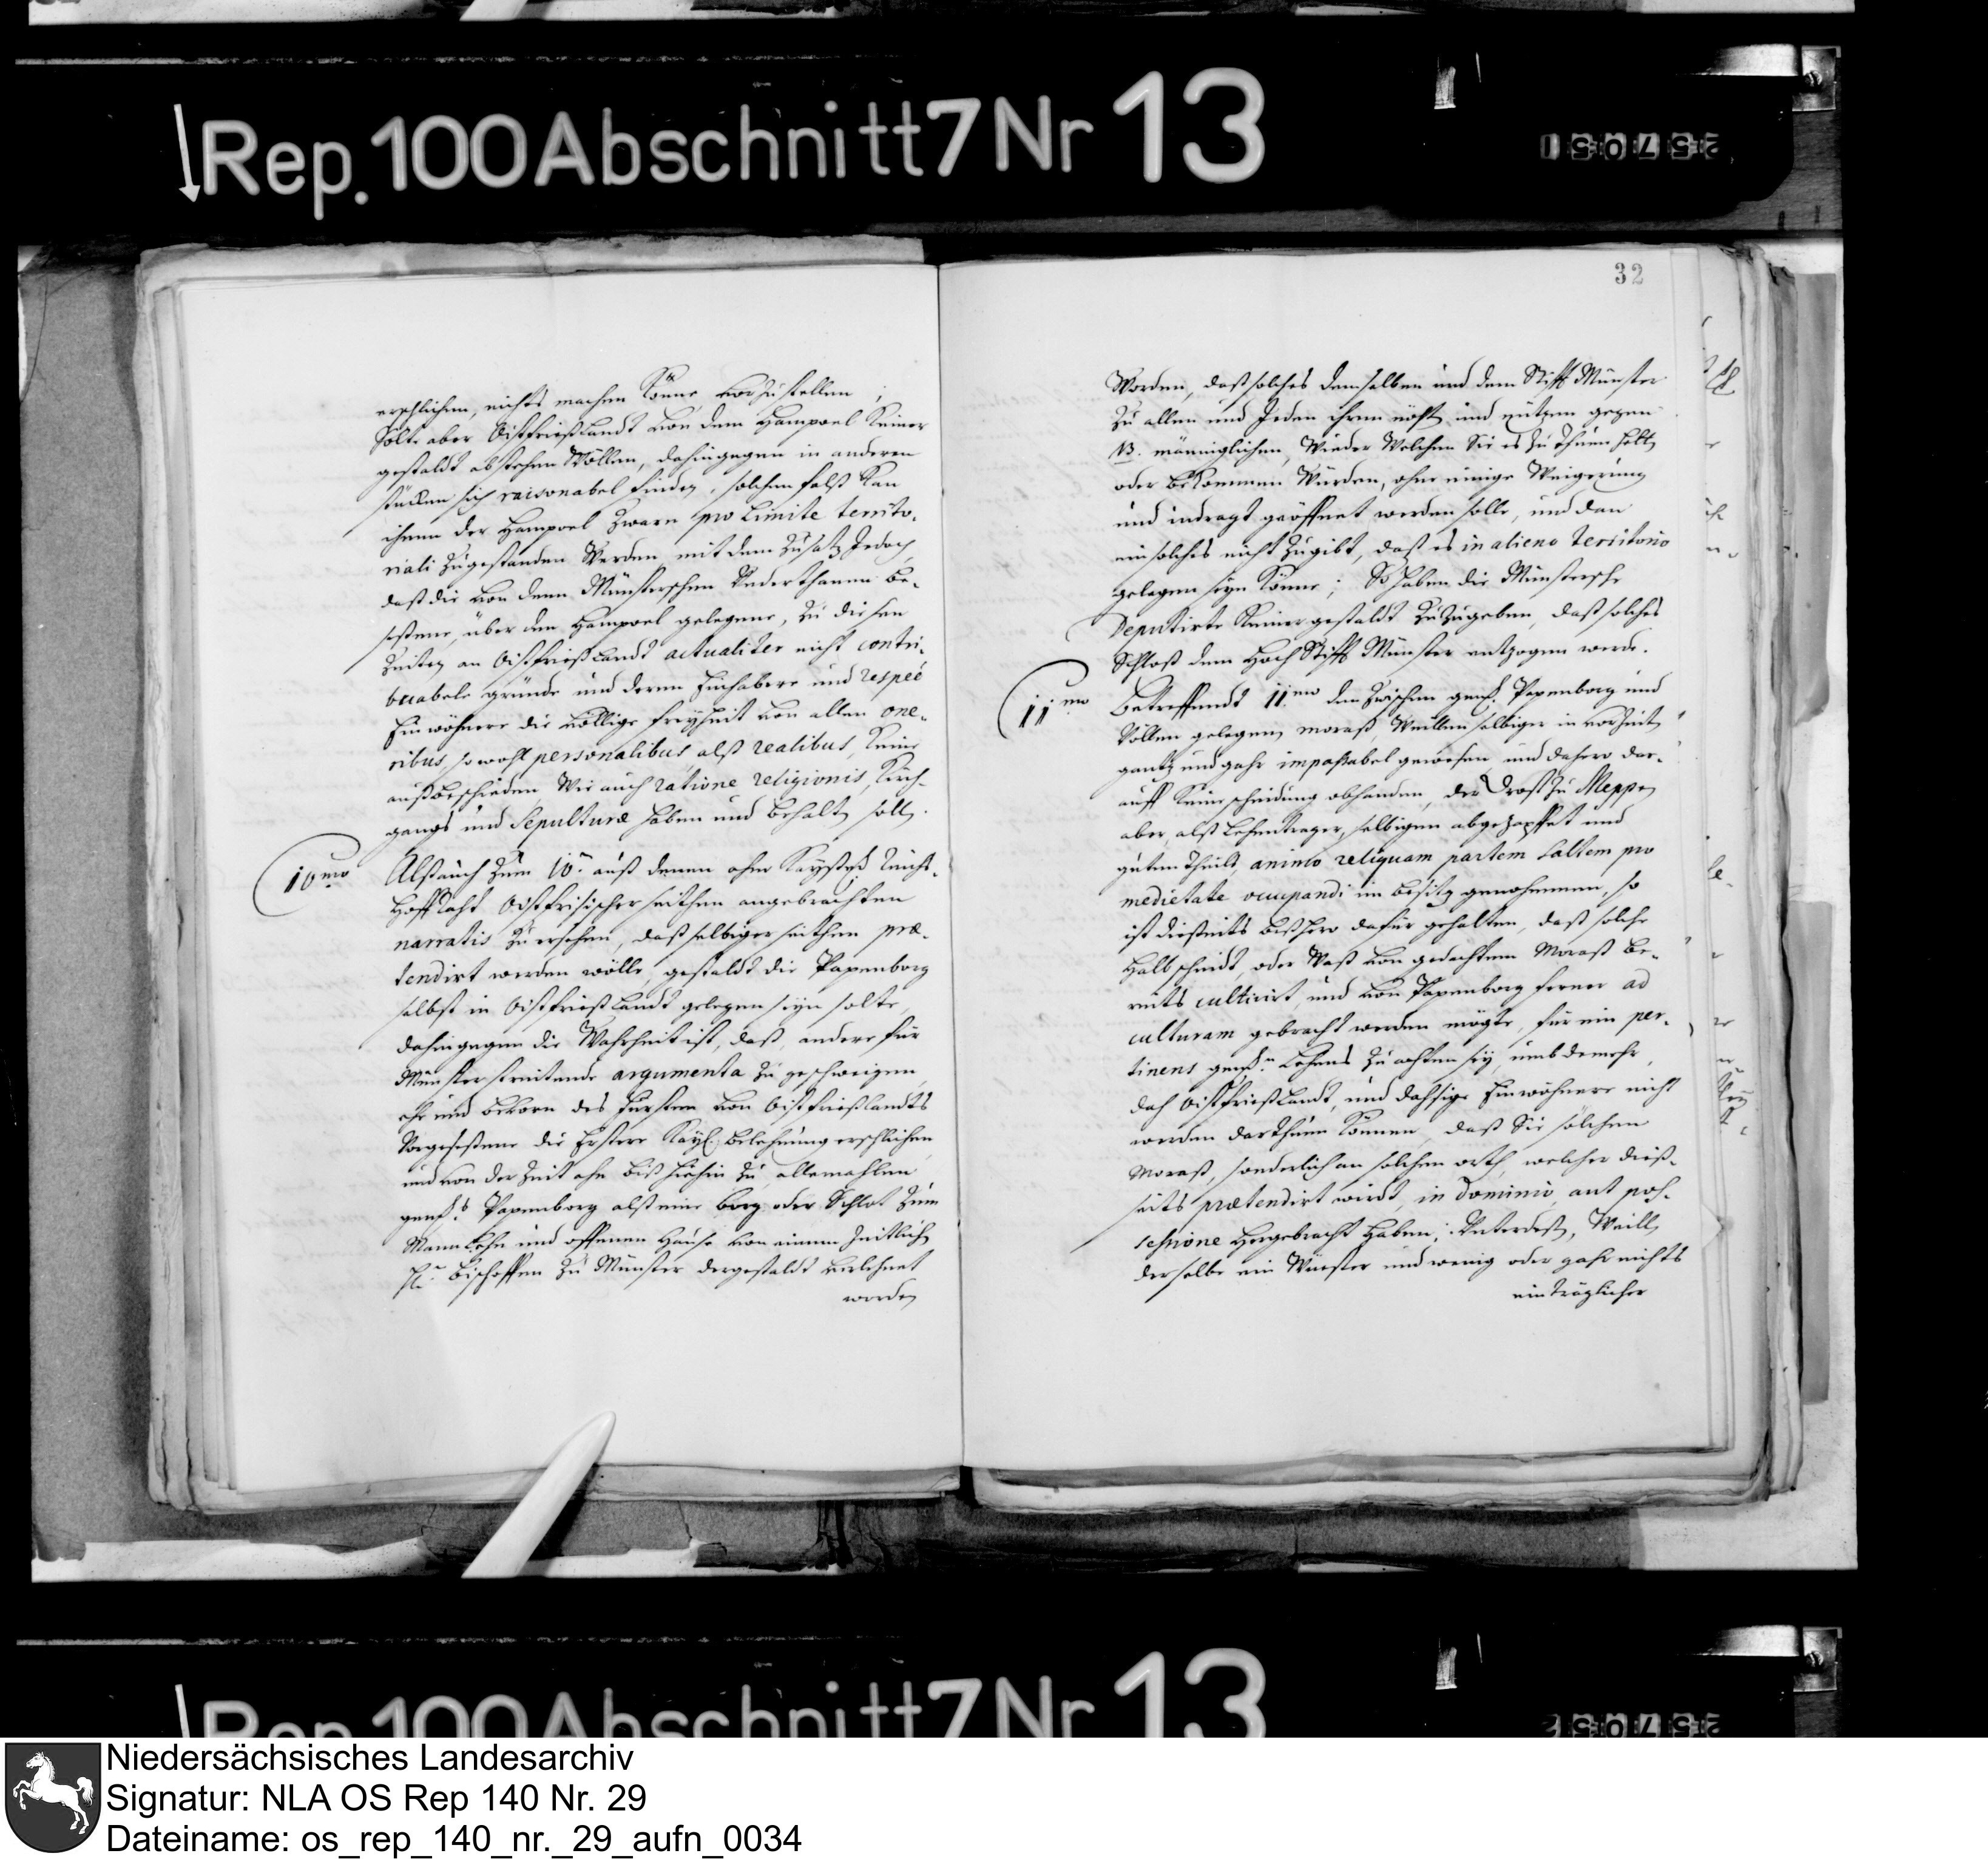 Rep. 100 Abschnitt 7 Nr 13
257051
erschlichen, nichts machen Könne vorzustellen;
Solte aber Oistfrießlandt von dem Hampoel Keiner
gestaldt abstehen Wöllen, dahingegen in anderen
stücken sich raisonabel finden, solchen falß Kan
ihnen der Hampoel Zwarn pro Limite territo-
riali Zugestanden Werden mit dem Zusatz Jedoch
daß die von denn Münsterschen Underthanen be-
seßene, über den Hampoel gelegene, zu diesen
Zeiten an Oistfrießlandt actualiter nicht contri-
buabele gründe und deren Einhabere und respée
Einwöhnere die völlige freyheit von allen one-
ribus, so wohl personalibus, alß realibus, Keine
außbescheiden, Wie auch ratione religionis, Kirch-
gangs und Sepulturæ haben und behalten sollen.
10mo
Alß auch zum 10. auß denen ahm Kayserl. Reichs-
Hoffraht Oistfrisischer seithen angebrachten
narratis zu ersehen, daß selbiger seithen præ-
tendirt werden wölle, gestaldt die Papenborg
selbst in Oistfrießlandt gelegen seyn solte,
dahingegen die Wahrheit ist, daß, andere für
Münster streitende argumenta zu geschweigen,
ehe und bevorn des Fürsten von Oistfrießlandts
Vorgeseßene die Erstere Kayl. belehnung erschlichen
und von der Zeit ahn biß hiehin zu allemahlen
gemlt. Papenborg alß eine borg oder Schlot zum
Mannlehn und offenen Hauße von einem Zeitlichen
Hr. Bischoffen zu Münster dergestaldt verlehnet
worden
32
Worden, daß solches demselben und dem Stifft Münster
zu allen und Jeden ihren nöht und nützen gegen
NB. männiglichen, Wieder Welchen Sie es zu thuen hetten
oder bekommen Würden, ohne einige Weigerung
und indragt geöffnet werden solle, und dan
ein solches nicht zugibt, daß es in alieno territorio
gelegen seyn Könne; So haben die Münstersche
Deputirte Keiner gestaldt zuzugeben, daß solches
Schloß dem Hoch Stifft Münster entzogen werde.
11mo
Betreffendt 11mo den zwischen gemlt. Papenborg und
Völlen gelegenen moraß, Weillen selbiger in vorzeiten
gantz und gahr impaßabel gewesen und dahero dar-
auff Keine scheidung obhanden, der Drost zu Meppen
aber, alß Lehentrager, selbigen abgezapffet und
guten Theils, animo reliquam partem saltem pro
medietate occupandi in besitz genohmmen, so
ist dießeits bißhero dafür gehalten, daß solche
Halbscheidt, oder Waß von gedachtem Moraß be-
reits cultivirt und von Papenborg ferner ad
culturam gebracht werden mögte, für ein per-
tinens gemlt. Lehens zu achten sey, umb demehr,
dah Oistfrießlandt, und dahsige Einwöhnere nicht
werden darthuen Können, daß Sie sölchen
Moraß, sonderlich an solchen orth, welcher dieß-
seits prætendirt wirdt, in dominio, aut pos-
sessione hergebracht haben; Unterdeß, Weillen
derselbe ein Wüester und wenig oder gahr nichts
einträglicher
Rep. 100 Abschnitt 7 Nr 13
257052
Niedersächsisches Landesarchiv
Signatur: NLA OS Rep 140 Nr. 29
Dateiname: os_rep_140_nr._29_aufn_0034